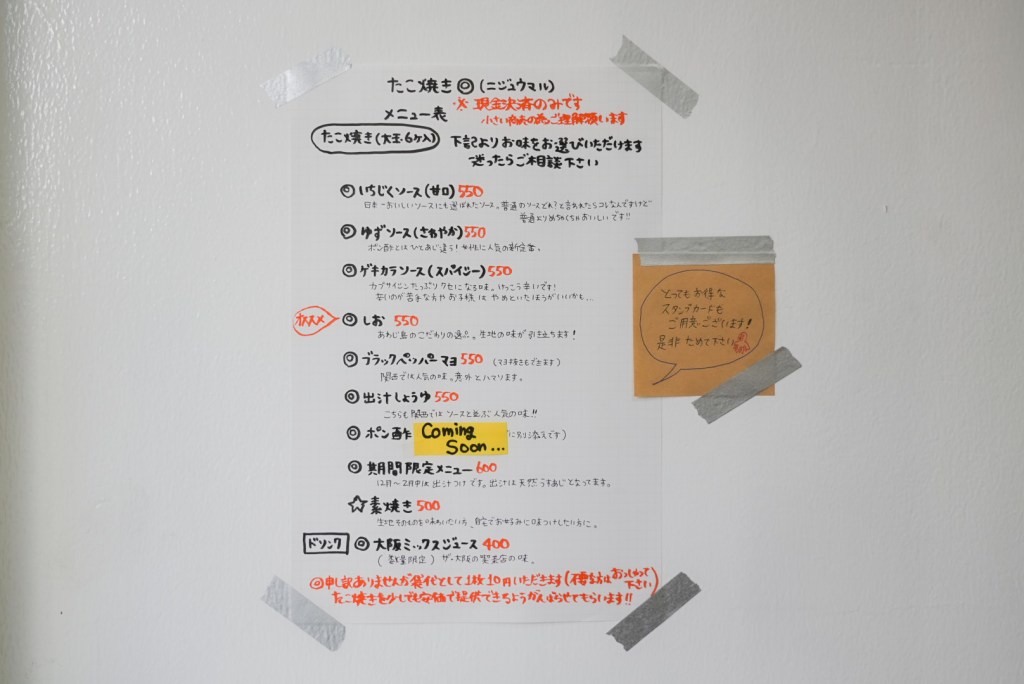 たこ焼き◎(ニジュウマル)
※現金決済のみです
メニュー表
小さいお店の為ご理解願います
たこ焼き(大玉・6ケ入)
下記よりお味をお選びいただけます
迷ったらご相談下さい
◎いちじくソース(甘口)550
日本一おいしいソースにも選ばれたソース。普通のソースどれ?と言われたらコレなんですけど
普通よりめちゃくちゃおいしいです!!
◎ゆずソース(さわやか)550
ポン酢とはひとあじ違う!女性に人気の新定番。
◎ゲキカラソース(スパイシー)550
カプサイシンたっぷりクセになる味。けっこう辛いです!
辛いのが苦手な方やお子様はやめといたほうがいいかも...
オススメ
◎しお 550
あわじ島のこだわりの逸品。生地の味が引き立ちます!
◎ブラックペッパーマヨ550(マヨ抜きもできます)
関西では人気の味。意外とハマります。
◎出汁しょうゆ550
こちらも関西ではソースと並ぶ人気の味!!
◎ポン酢 Coming に別添えです)
Soon...
◎期間限定メニュー600
12月~2月中は出汁つけです。出汁は天然うすあじとなってます。
☆素焼き500
生地そのものを味わいたい方、自宅でお好みに味つけしたい方に。
ドリンク
◎大阪ミックスジュース400
(数量限定)ザ・大阪の喫茶店の味。
◎申し訳ありませんが袋代として1枚10円いただきます(不要な方はおっしゃって下さい)
たこ焼きを少しでも安価で提供できるようがんばらせてもらいます!!
とってもお得な
スタンプカードも
ご用意ございます!
是非ためて下さい